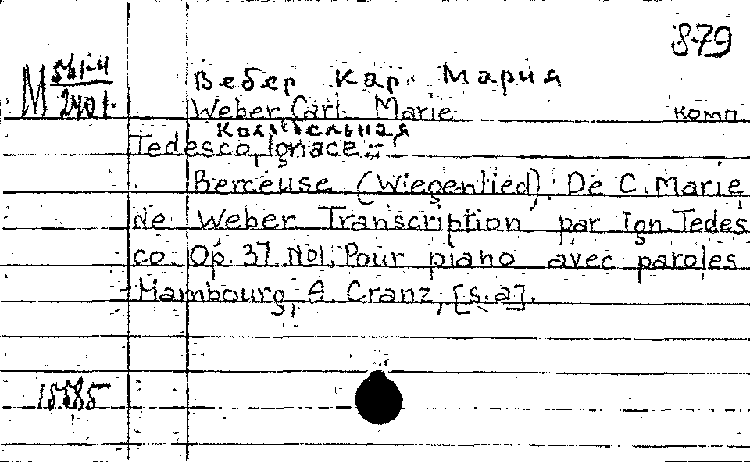 879
М 561-4
2401
Вебер Кар. Мария
Weber Carl Marie комп
Колыбельная
Tedesco, Ignace.
Berceuse (Wiegenlied). De C. Marie
de Weber Transcription par Ign. Tedes
co. Op. 37 №1. Pour piano avec paroles
Hambourg, A. Cranz, [s.a].
15585